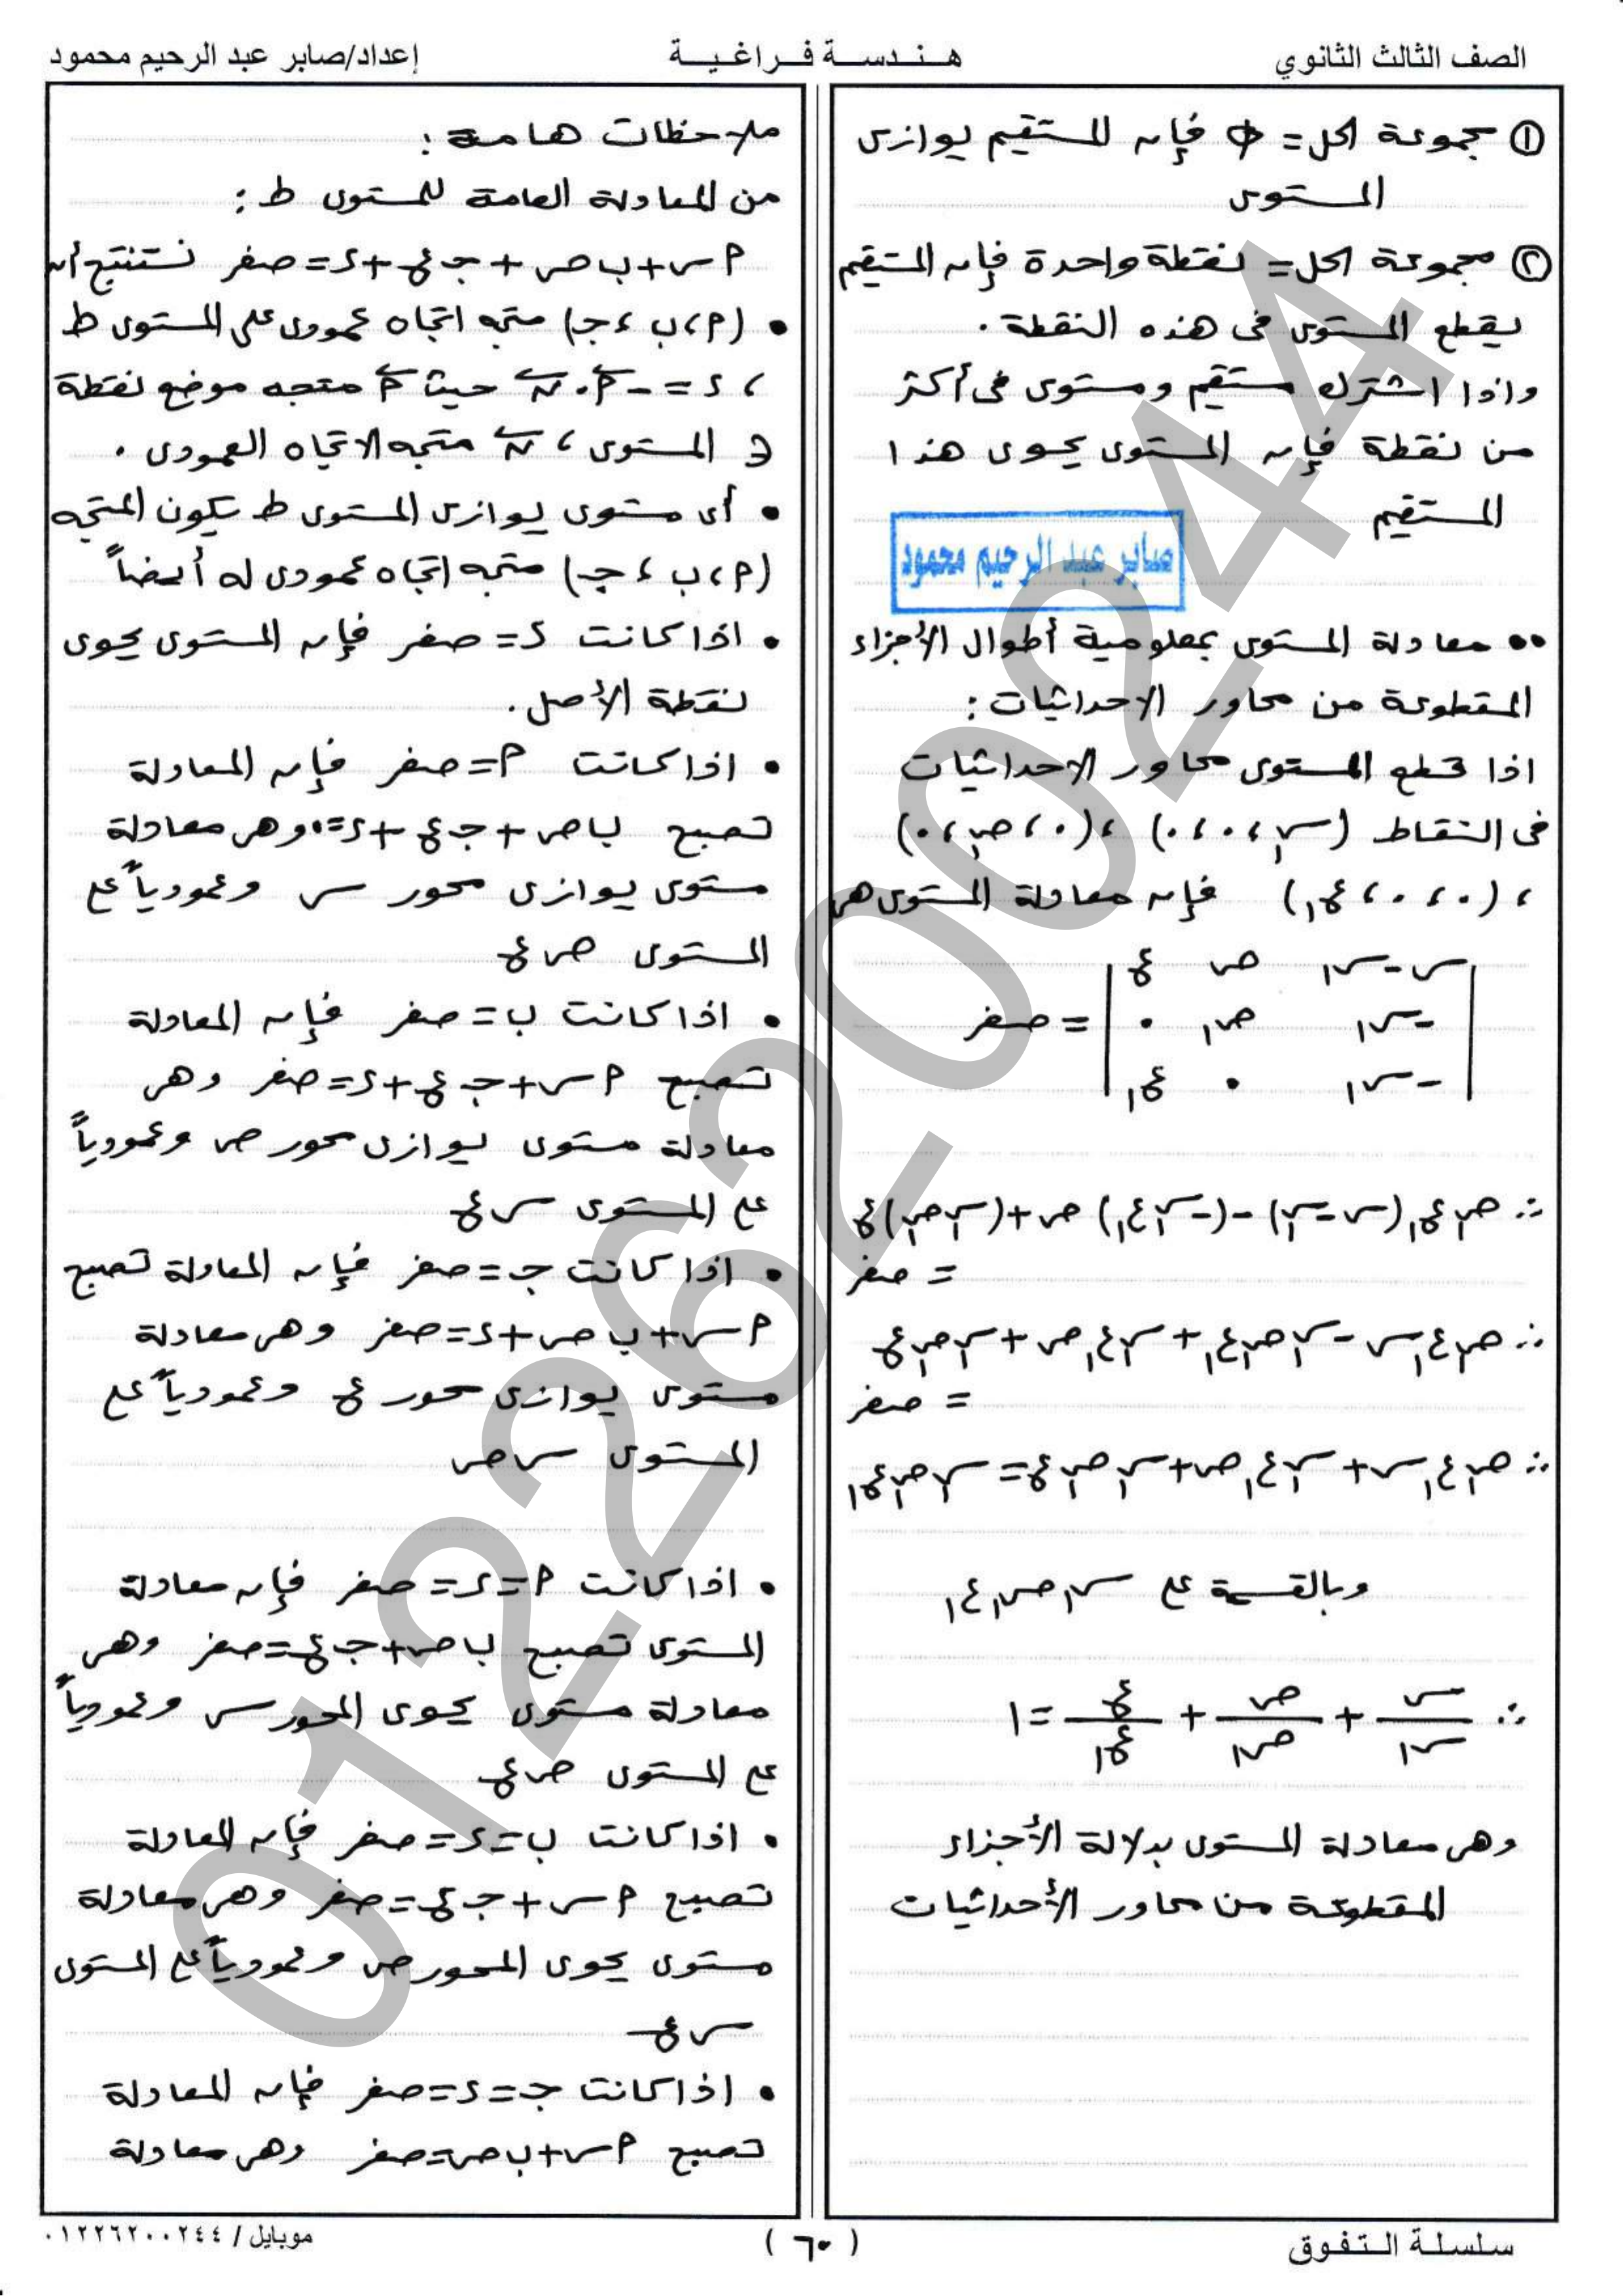 الصف الثالث الثانوي
هـنـدسـة فـراغـيـة
إعداد/صابر عبد الرحيم محمود
① مجموعة الحل = φ فإن المستقيم يوازى
المستوى
② مجموعة الحل = نقطة واحدة فإن المستقيم
يقطع المستوى فى هذه النقطة .
واذا اشترك مستقيم ومستوى فى أكثر
من نقطة فإن المستوى يحوى هذا
المستقيم
صابر عبد الرحيم محمود
•• معادلة المستوى بمعلومية أطوال الأجزاء
المقطوعة من محاور الاحداثيات :
اذا قطع المستوى محاور الاحداثيات
فى النقاط (س١ ، ٠ ، ٠) ، (٠ ، ص١ ، ٠)
، (٠ ، ٠ ، ع١) فإن معادلة المستوى هى
| س - س١ ص ع |
| -س١ ص١ ٠ | = صفر
| -س١ ٠ ع١ |
∴ ص١ ع١ (س - س١) - (-س١ ع١) ص + (س١ ص١) ع
= صفر
∴ ص١ ع١ س - س١ ص١ ع١ + س١ ع١ ص + س١ ص١ ع
= صفر
∴ ص١ ع١ س + س١ ع١ ص + س١ ص١ ع = س١ ص١ ع١
وبالقسمة على س١ ص١ ع١
∴ س/س١ + ص/ص١ + ع/ع١ = ١
وهى معادلة المستوى بدلالة الأجزاء
المقطوعة من محاور الأحداثيات
ملاحظات هامة :
من المعادلة العامة للمستوى ط :
٢س + ب ص + جـ ع + ء = صفر نستنتج أن
• (٢ ، ب ، جـ) متجه اتجاه عمودى على المستوى ط
، ء = - ٢⃗ . ن⃗ حيث ٢⃗ متجه موضع نقطة
∈ المستوى ، ن⃗ متجه الاتجاه العمودى .
• أى مستوى يوازى المستوى ط يكون المتجه
(٢ ، ب ، جـ) متجه اتجاه عمودى له أيضاً
• اذا كانت ء = صفر فإن المستوى يحوى
نقطة الأصل .
• اذا كانت ٢ = صفر فإن المعادلة
تصبح ب ص + جـ ع + ء = ٠ وهى معادلة
مستوى يوازى محور س وعمودياً على
المستوى ص ع
• اذا كانت ب = صفر فإن المعادلة
تصبح ٢س + جـ ع + ء = صفر وهى
معادلة مستوى يوازى محور ص وعمودياً
على المستوى س ع
• اذا كانت جـ = صفر فإن المعادلة تصبح
٢س + ب ص + ء = صفر وهى معادلة
مستوى يوازى محور ع وعمودياً على
المستوى س ص
• اذا كانت ٢ = ء = صفر فإن معادلة
المستوى تصبح ب ص + جـ ع = صفر وهى
معادلة مستوى يحوى المحور س وعمودياً
على المستوى ص ع
• اذا كانت ب = ء = صفر فإن المعادلة
تصبح ٢س + جـ ع = صفر وهى معادلة
مستوى يحوى المحور ص وعمودياً على المستوى
س ع
• اذا كانت جـ = ء = صفر فإن المعادلة
تصبح ٢س + ب ص = صفر وهى معادلة
سلسلة الـتـفـوق
( ٦٠ )
موبايل / ٠١٢٢٦٢٠٠٢٤٤
01226200244